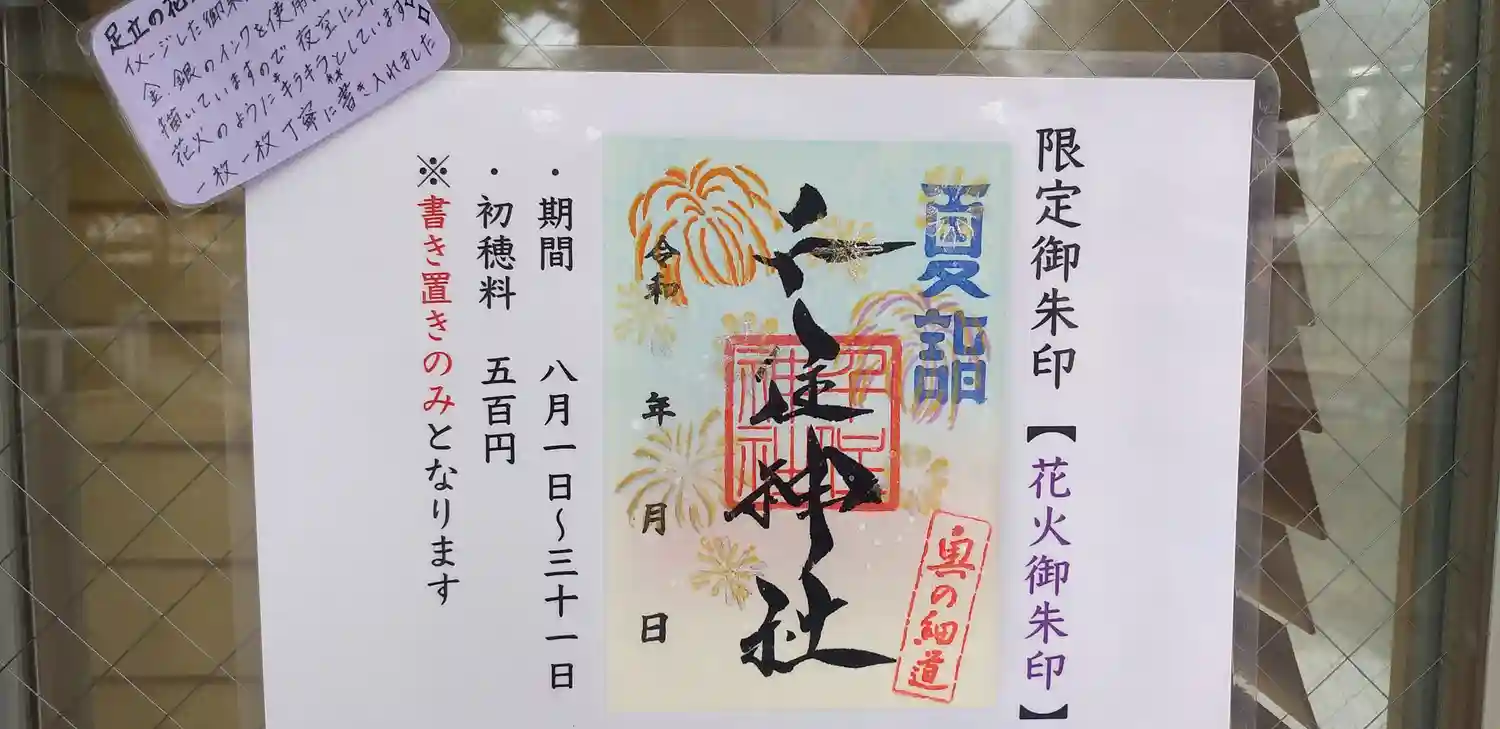 限定御朱印【花火御朱印】
夏詣
千住神社
千住
神社
奥の細道
令和 年 月 日
・期間 八月一日~三十一日
・初穂料 五百円
※書き置きのみとなります
足立の花
イメージした御朱
金、銀のインクを使用
描いていますので夜空に上
花火のようにキラキラとしています
一枚一枚丁寧に書き入れました